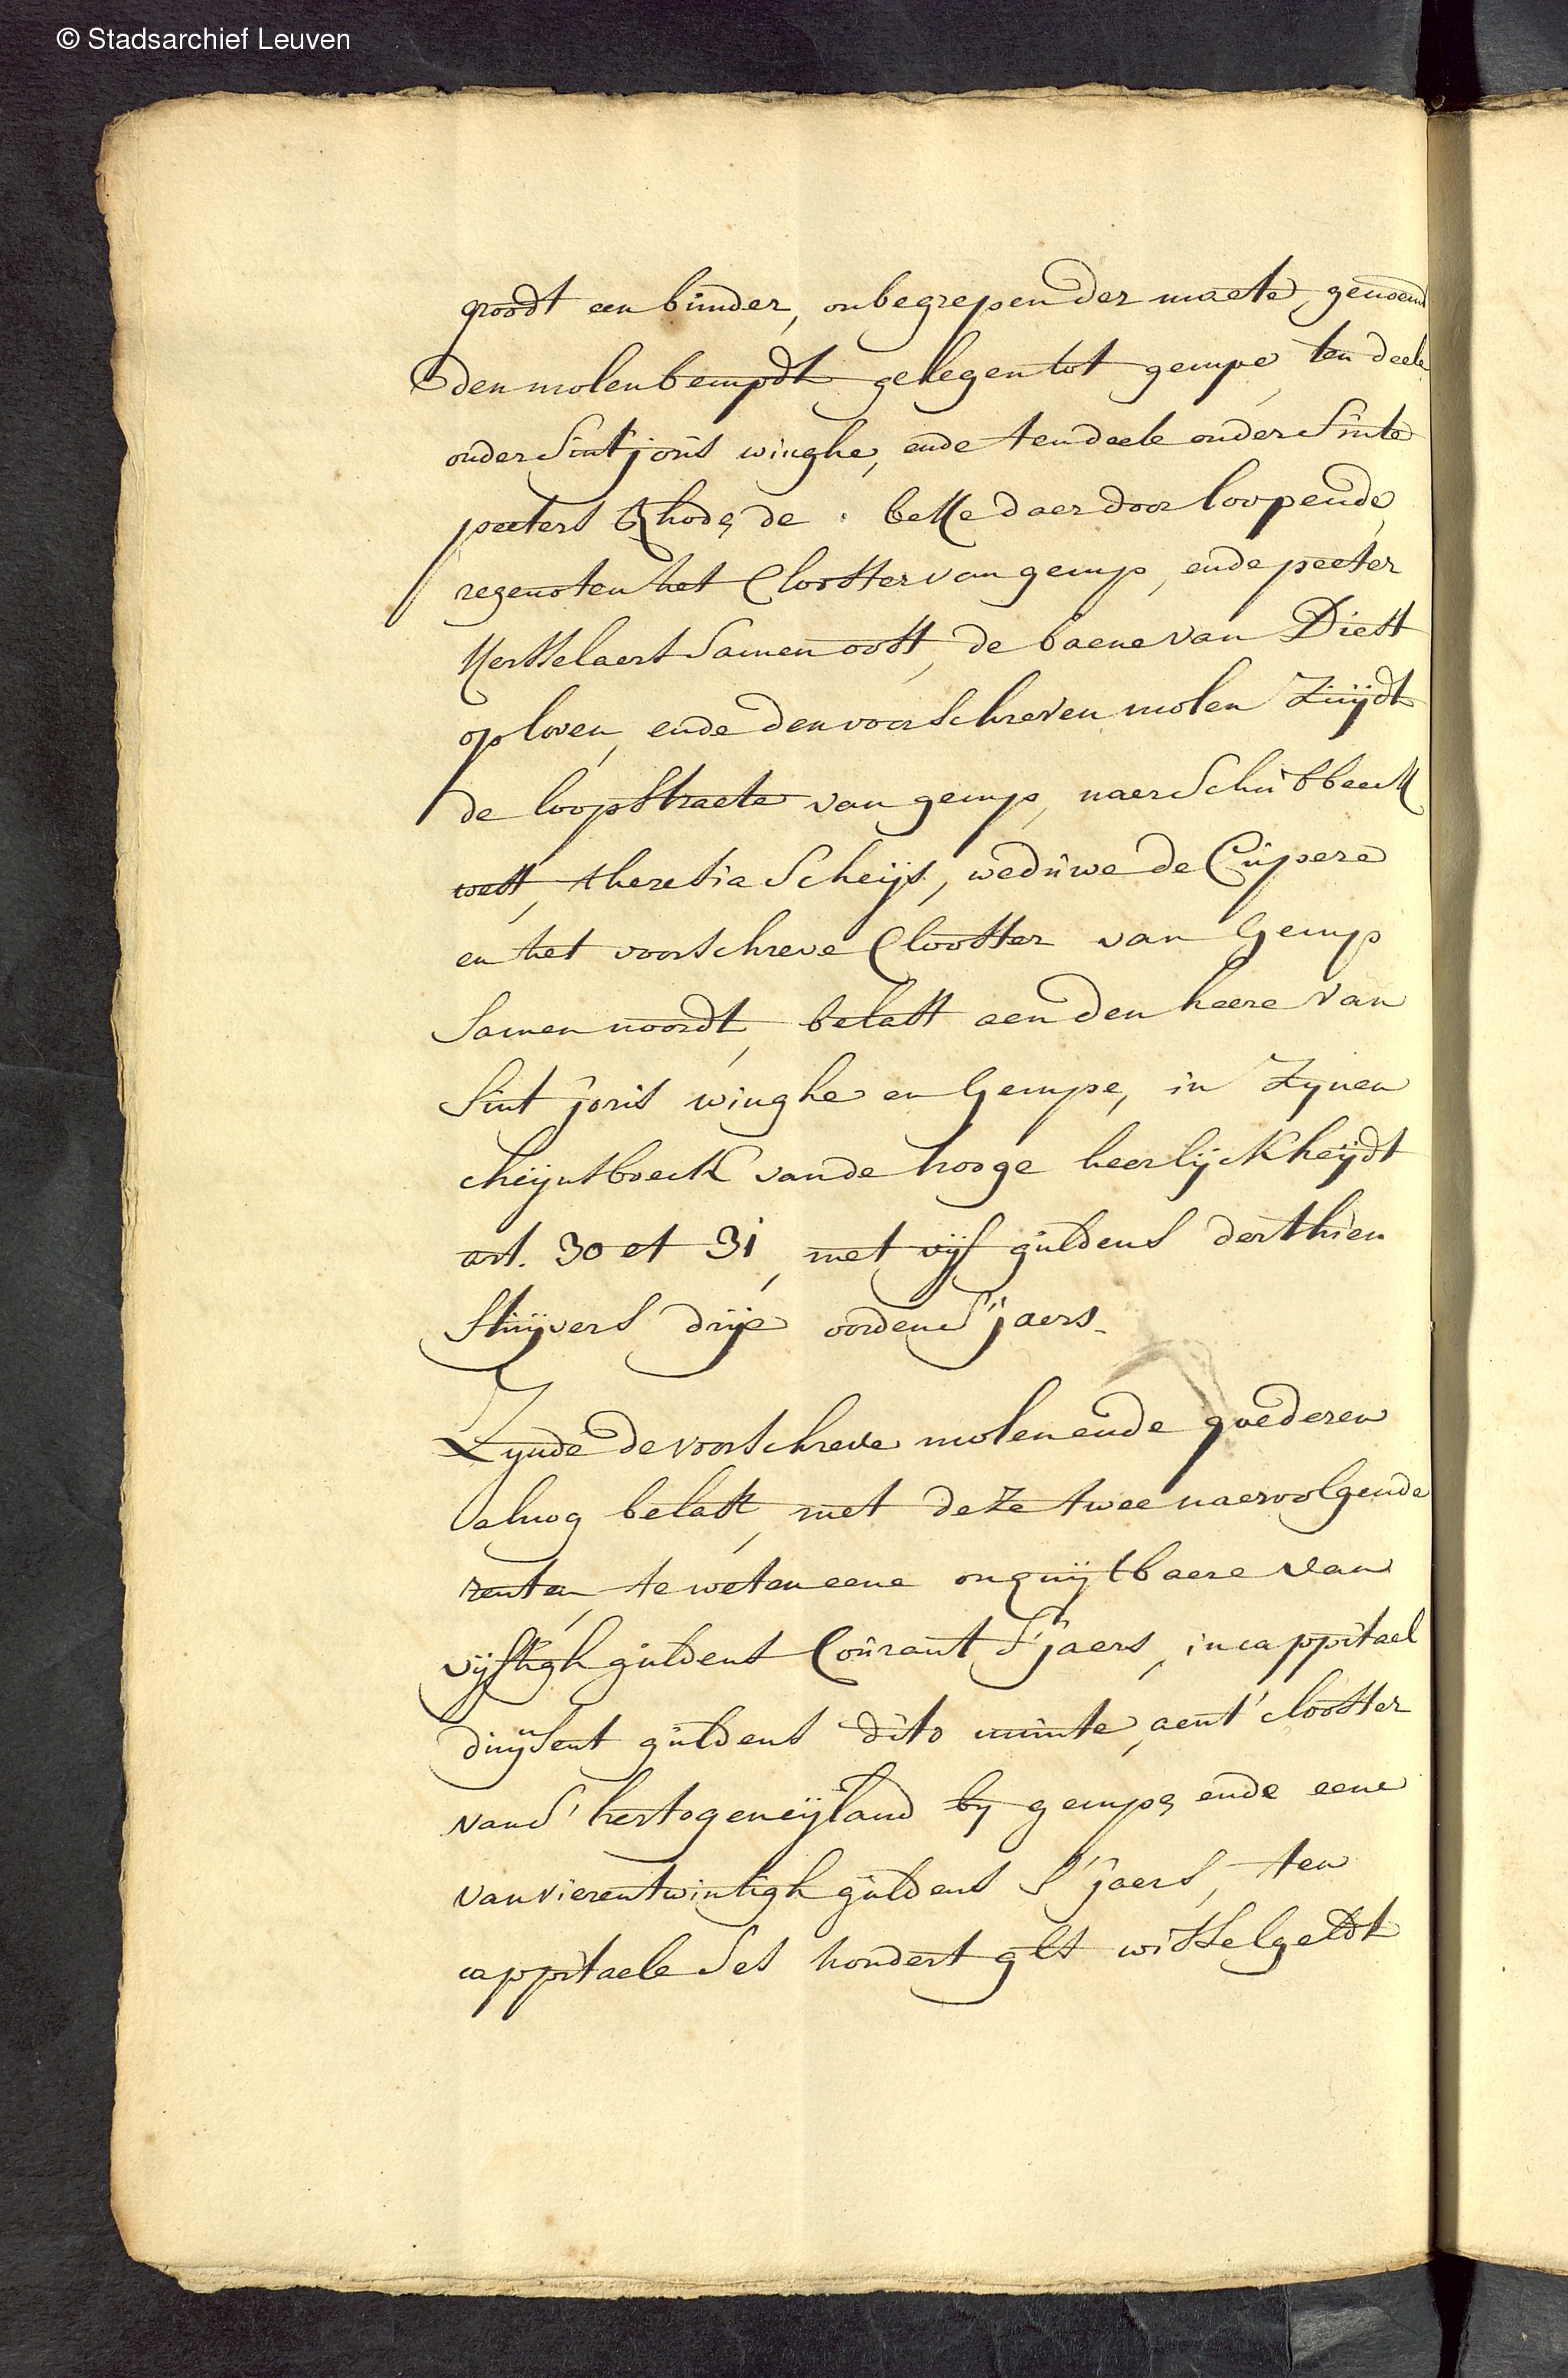 © Stadsarchief Leuven
groodt een bunder, onbegrepen der maete, genoemt
den molenbempdt gelegen tot gempe, ten deele
onder Sint joris winghe, ende ten deele onder Sinte
peeters Rhode, de beke daer door loopende,
regenoten het Clooster van gemp, ende peeter
Kersselaers samen oost, de baene van Diest
op loven, ende den voorschreven molen Zuÿdt
de loopstraete van gemp, naer Schubbeeck
west, theresia Scheÿs, weduwe de Cupere
en het voorschreve Clooster van Gemp
samen noordt, belast aen den heere van
Sint joris winghe en Gempe, in Zynen
cheÿnsboeck vande hooge heerlijckheÿdt
art. 30 et 31, met vijf guldens derthien
stuÿvers drije oordens s'jaers.
Zynde de voorschreve molen ende goederen
alnog belast, met deze twee naervolgende
renten, te weten eene onquytbaere van
vijftigh guldens Courant s'jaers, in cappitael
duÿsent guldens dito munte, aent' clooster
van S' hertogeneÿland by gempe, ende eene
van vierentwintigh guldens s'jaers, ten
cappitaele ses hondert gls wisselgeldt